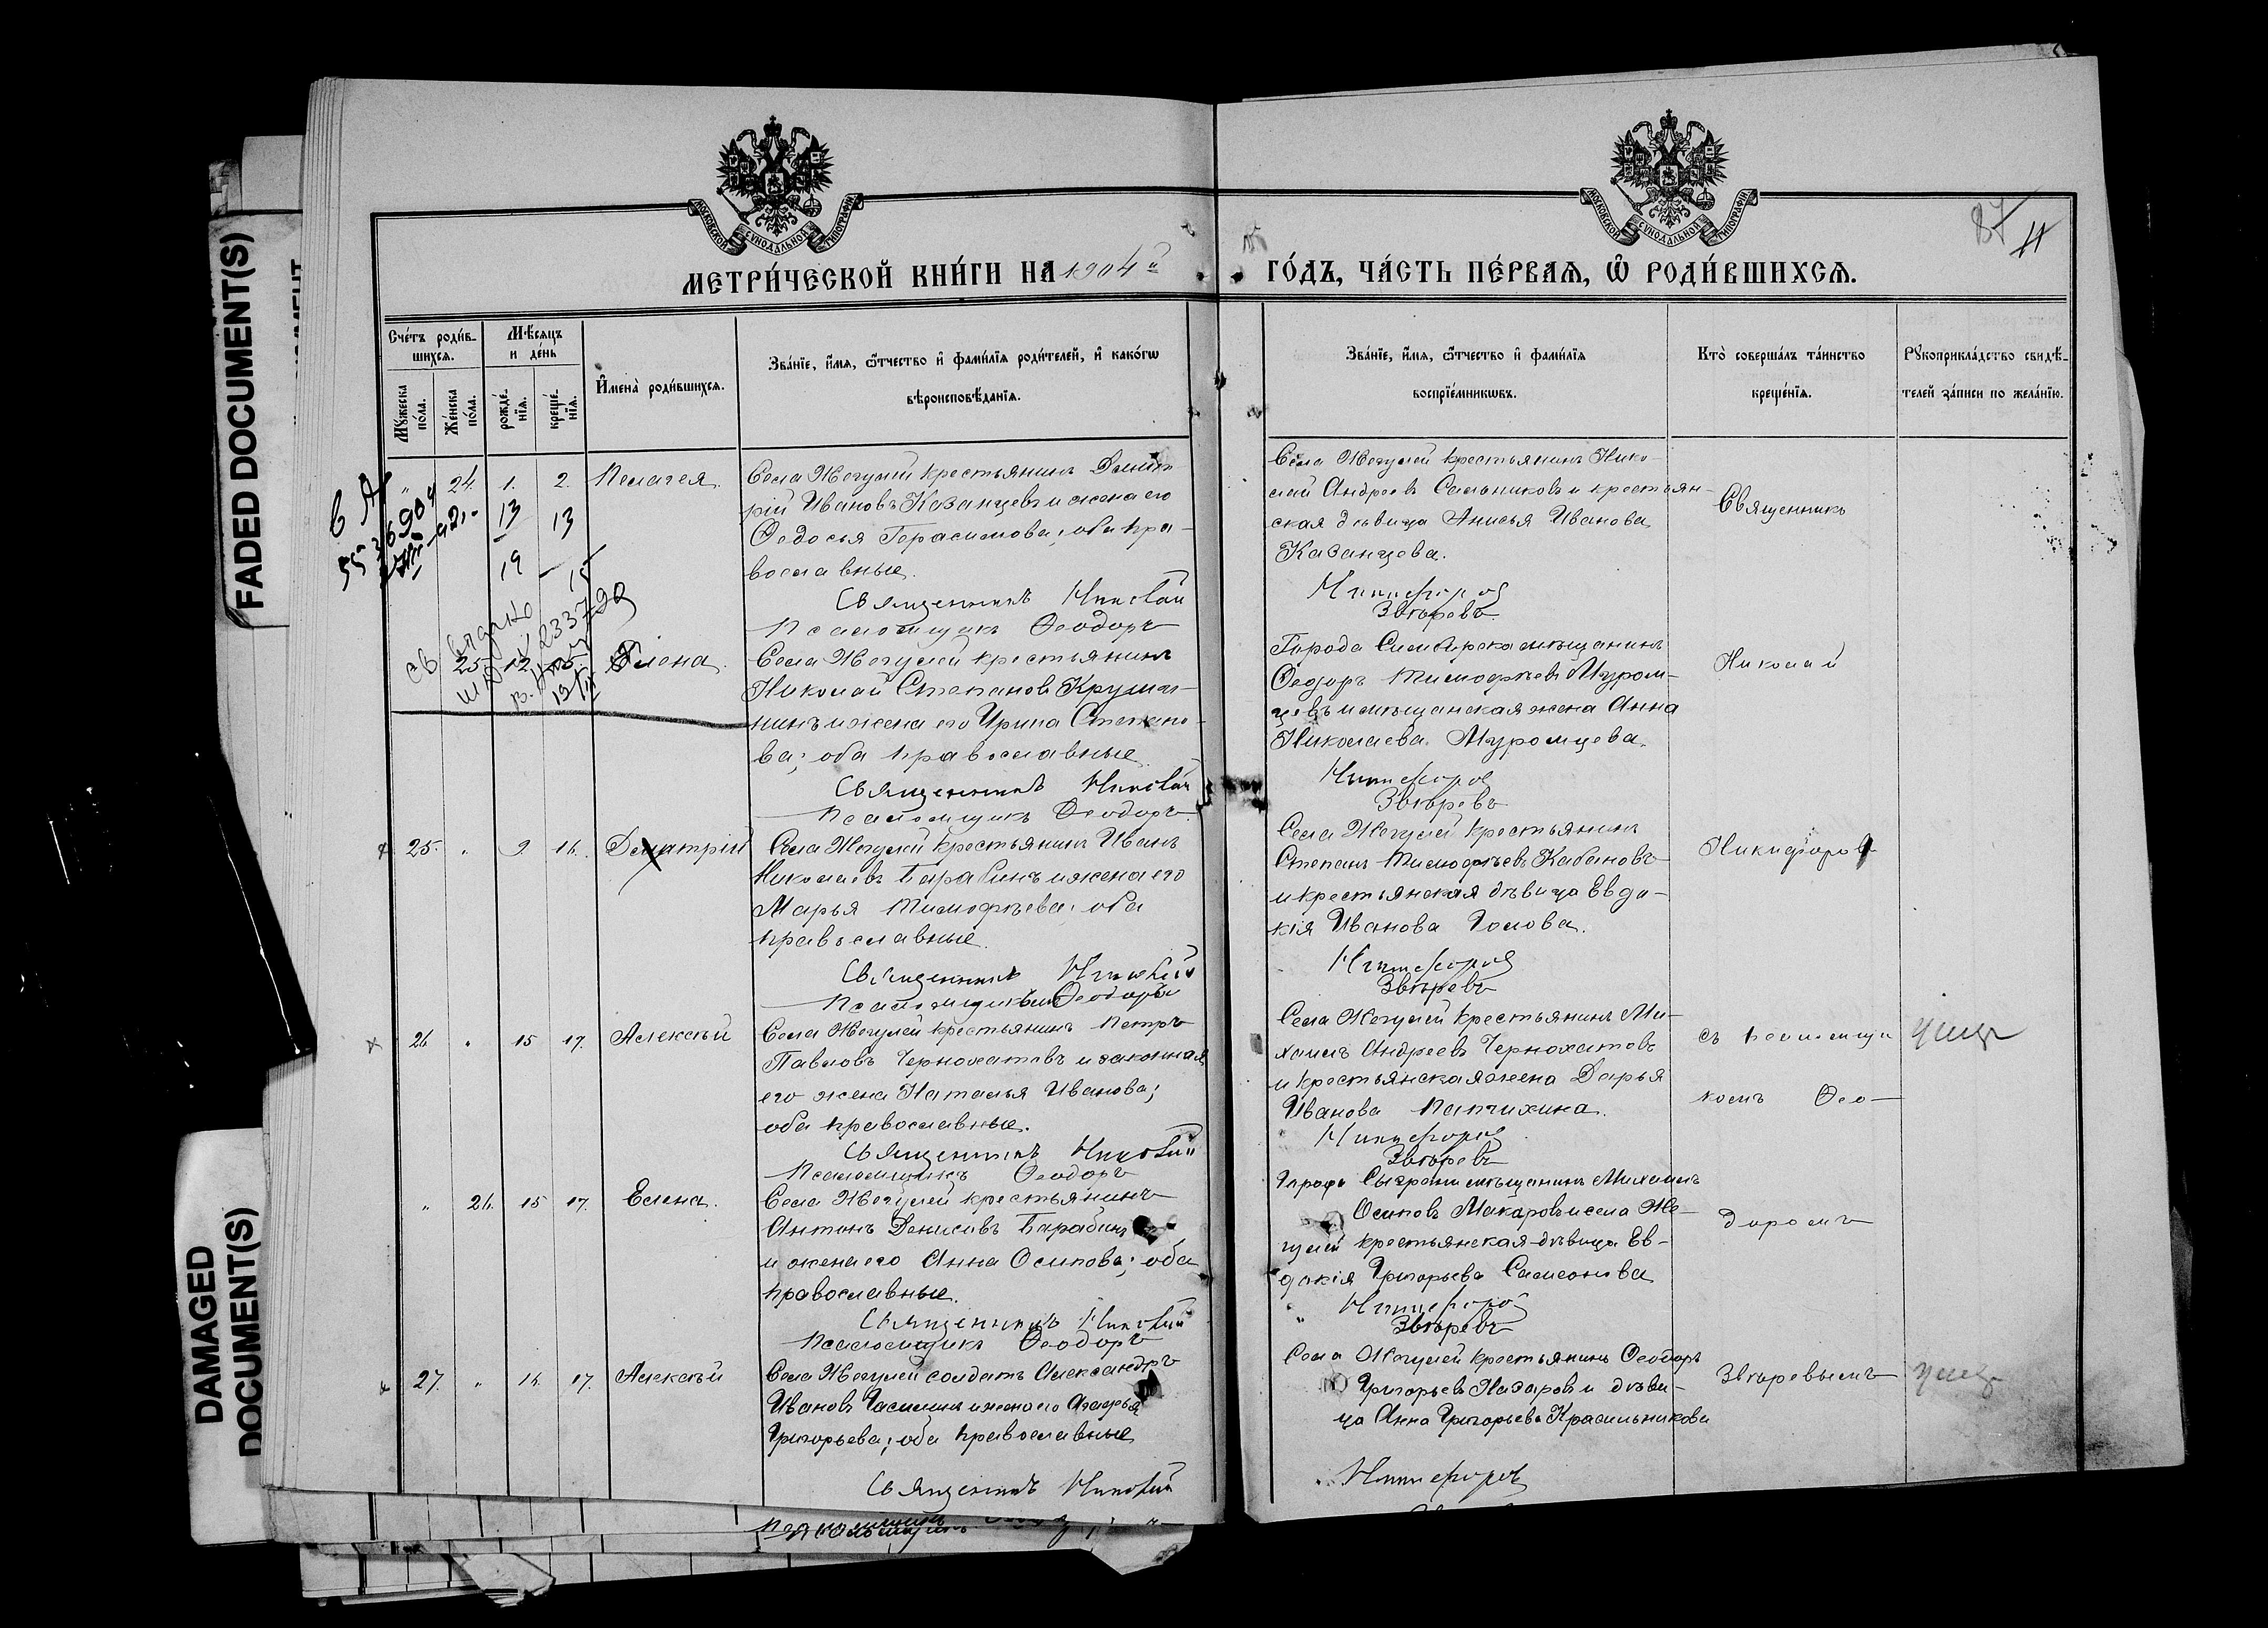 FADED DOCUMENT(S)
DAMAGED
DOCUMENT(S)
МОСКОВСКОЙ СѴНОДАЛЬНОЙ ТИПОГРАФІИ
МОСКОВСКОЙ СѴНОДАЛЬНОЙ ТИПОГРАФІИ
87
11
МЕТРИ́ЧЕСКОЙ КНИ́ГИ НА 1904 й
ГО́ДЪ, ЧА́СТЬ ПЕ́РВАѦ, Ѽ РОДИ́ВШИХСѦ.
Сче́тъ роди́в-
шихсѧ.
Мꙋ́жеска по́ла.
Же́нска по́ла.
Мѣ́сѧцъ
и де́нь
рожде́-
нїѧ.
креще́-
нїѧ.
И҆мена̀ роди́вшихсѧ.
Зва́нїе, и҆́мѧ, ѻ҆́тчество и҆ фами́лїѧ роди́телей, и҆ како́гѡ
вѣроисповѣ́данїѧ.
Зва́нїе, и҆́мѧ, ѻ҆́тчество и҆ фами́лїѧ
воспрїе́мникѡвъ.
Кто̀ соверша́лъ та́инство
креще́нїѧ.
Рꙋкоприкла́дство свидѣ́-
телей за́писи по жела́нїю.
" 24. 1. 2. Пелагея.
13 13
19 – 15
Села Жегулей крестьянинъ Димит
рій Ивановъ Казанцевъ и жена его
Ѳедосья Герасимова; оба пра-
вославные.
Священникъ Николай
Псаломщикъ Ѳеодоръ
Села Жегулей крестьянинъ Нико-
лай Андреевъ Сальниковъ и крестьян-
ская дѣвица Анисья Иванова
Казанцева.
Никифоровъ
Звѣревъ
Священникъ
25. 12. 15. Елена.
Села Жегулей крестьянинъ
Николай Степановъ
нинъ и жена его Ирина Степано-
ва; оба православные.
Священникъ Николай
Псаломщикъ Ѳеодоръ
Города Симбирска мѣщанинъ
Ѳеодоръ Тимофѣевъ Муром-
цевъ и мѣщанская жена Анна
Николаева Муромцева.
Никифоровъ
Звѣревъ
Николай
25. " 9. 16. Димитрій
Села Жегулей крестьянинъ Иванъ
Николаевъ Барабинъ и жена его
Марья Тимофѣева; оба
православные.
Священникъ Николай
Псаломщикъ Ѳеодоръ
Села Жегулей крестьянинъ
Степанъ Тимофѣевъ Кабановъ
и крестьянская дѣвица Евдо-
кія Иванова
Никифоровъ
Звѣревъ
Никифоровъ
26. " 15 17. Алексѣй
Села Жегулей крестьянинъ Петръ
Павловъ Чернохатовъ и законная
его жена Наталья Иванова;
оба православные.
Священникъ Николай
Псаломщикъ Ѳеодоръ
Села Жегулей крестьянинъ Ми-
хаилъ Андреевъ Чернохатовъ
и крестьянская жена Дарья
Иванова Папчихина.
Никифоровъ
Звѣревъ
съ псаломщи
комъ Ѳео-
" 26. 15 17. Елена.
Села Жегулей крестьянинъ
Антонъ Денисовъ Барабинъ
и жена его Анна Осипова; оба
православные.
Священникъ Николай
Псаломщикъ Ѳеодоръ
Города Сызрани мѣщанинъ Михаилъ
Осиповъ Макаровъ и села Же-
гулей крестьянская дѣвица Ев-
докія Григорьева Самсонова
Никифоровъ
Звѣревъ
доромъ
27. " 16. 17. Алексѣй
Села Жегулей солдатъ Александръ
Ивановъ и жена его Агафья
Григорьева; оба православные
Священникъ Николай
Села Жегулей крестьянинъ Ѳеодоръ
Григорьевъ Назаровъ и дѣви-
ца Анна Григорьева Красильникова
Никифоровъ
Звѣревымъ